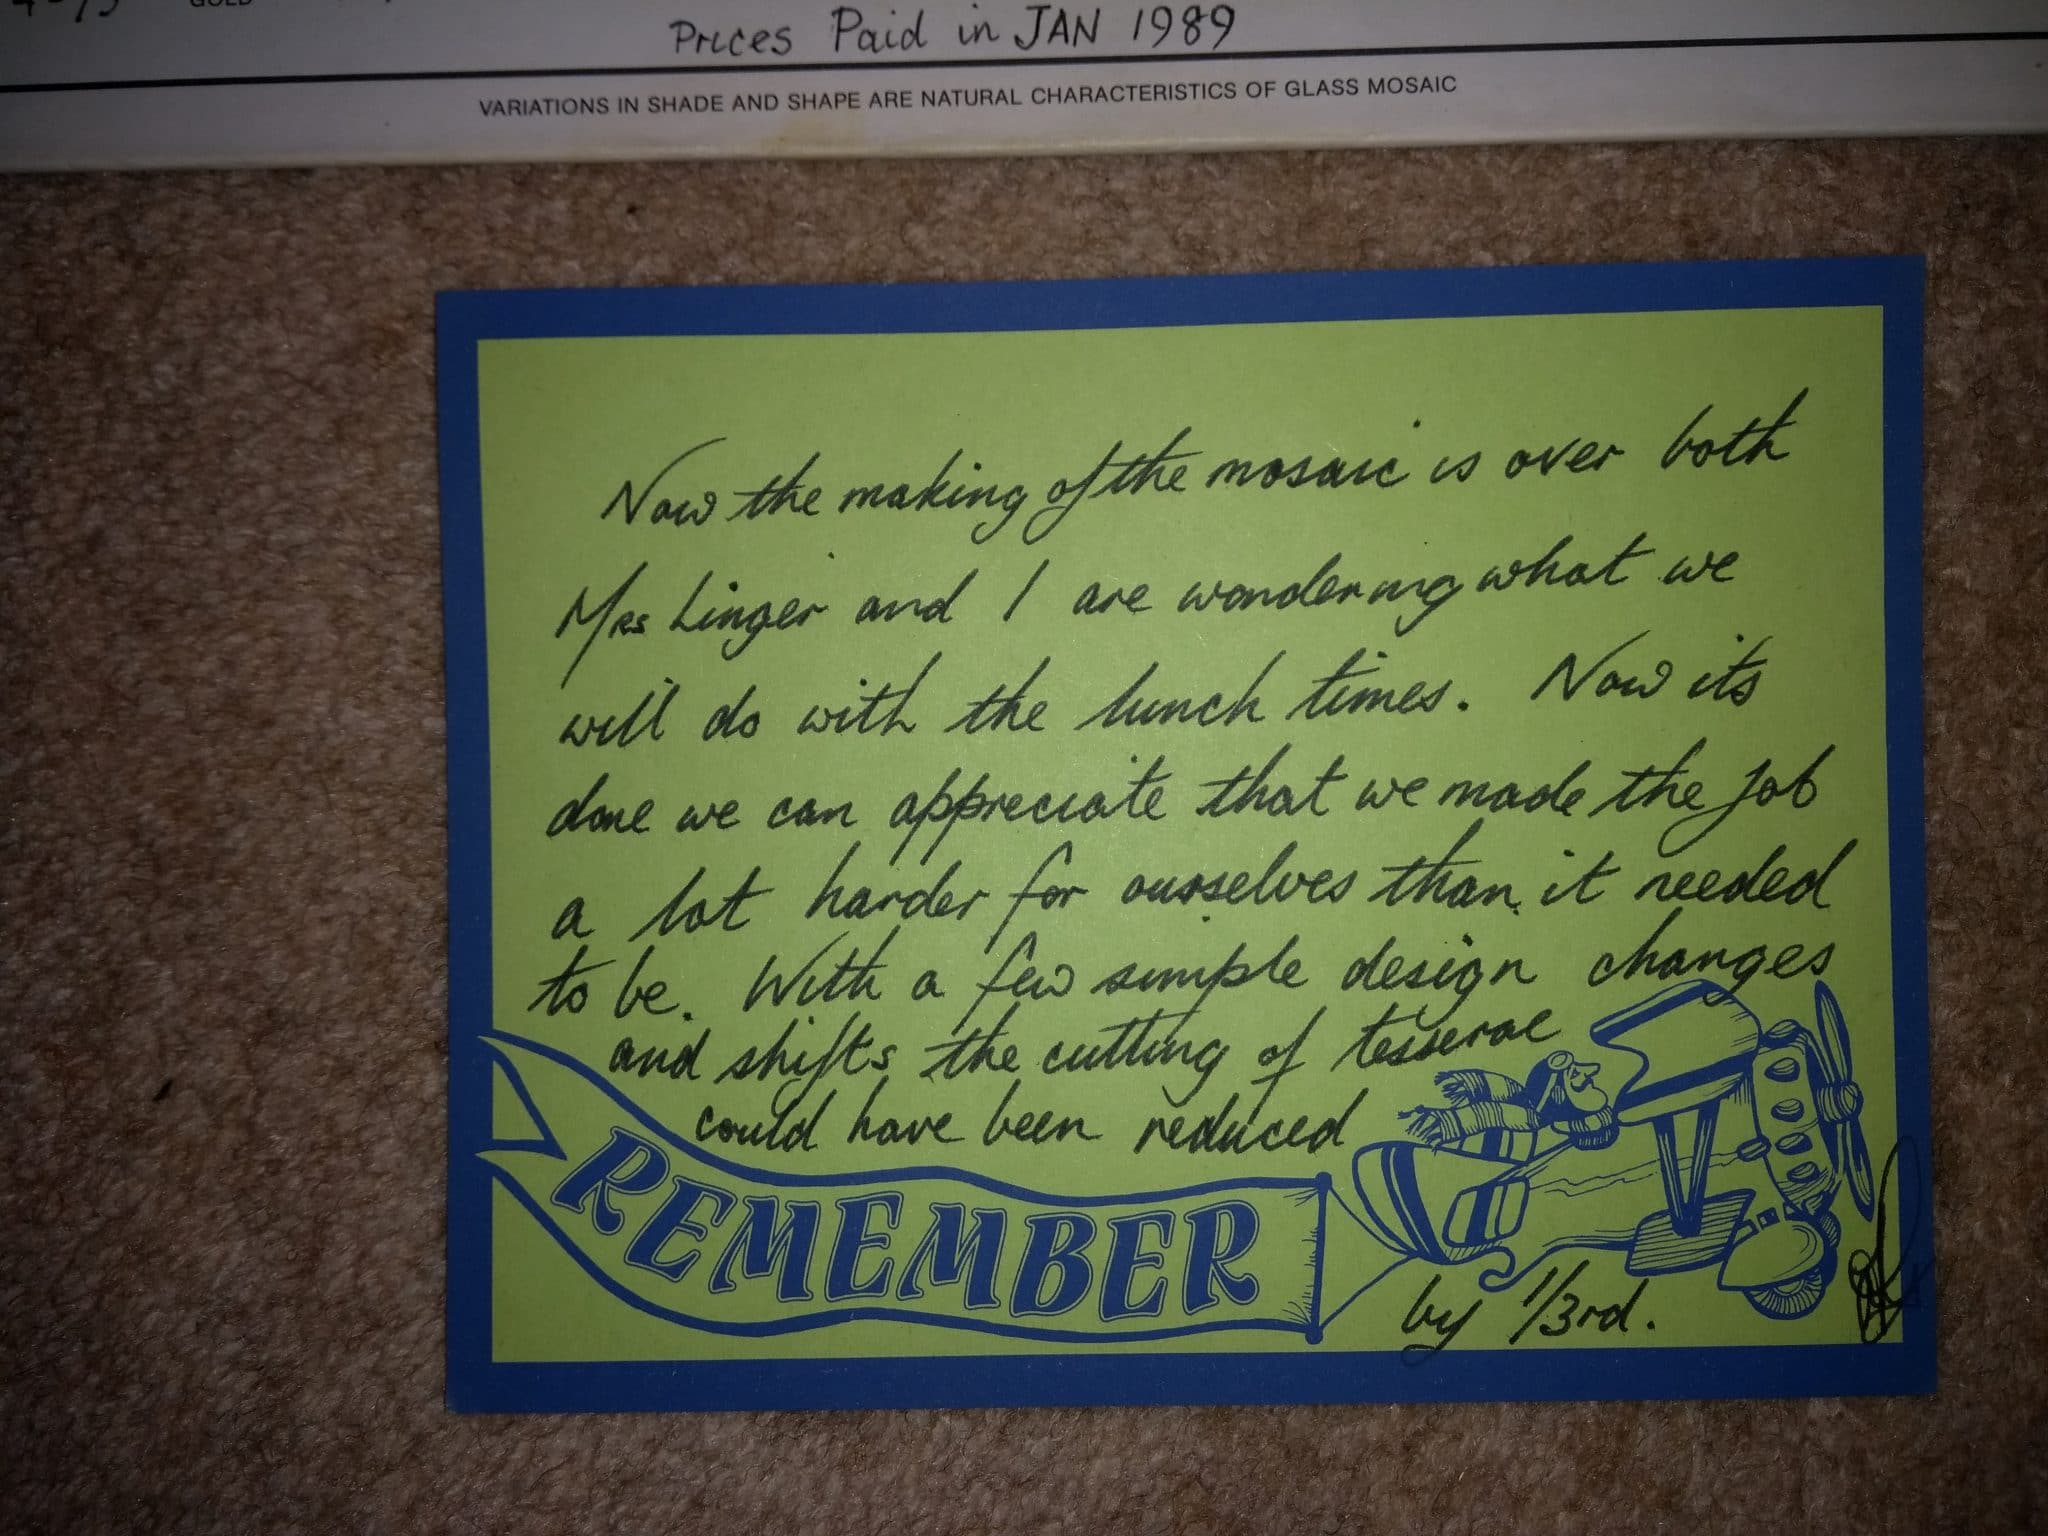 GOLD
Prices Paid in JAN 1989
VARIATIONS IN SHADE AND SHAPE ARE NATURAL CHARACTERISTICS OF GLASS MOSAIC
Now the making of the mosaic is over both
Mrs Linger and I are wondering what we
will do with the lunch times. Now its
done we can appreciate that we made the job
a lot harder for ourselves than it needed
to be. With a few simple design changes
and shifts the cutting of tesserae
could have been reduced
REMEMBER
by 1/3rd.